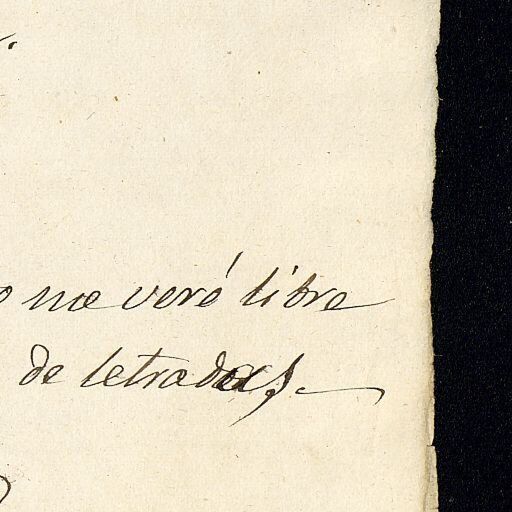 o me veré libre
de letrados.